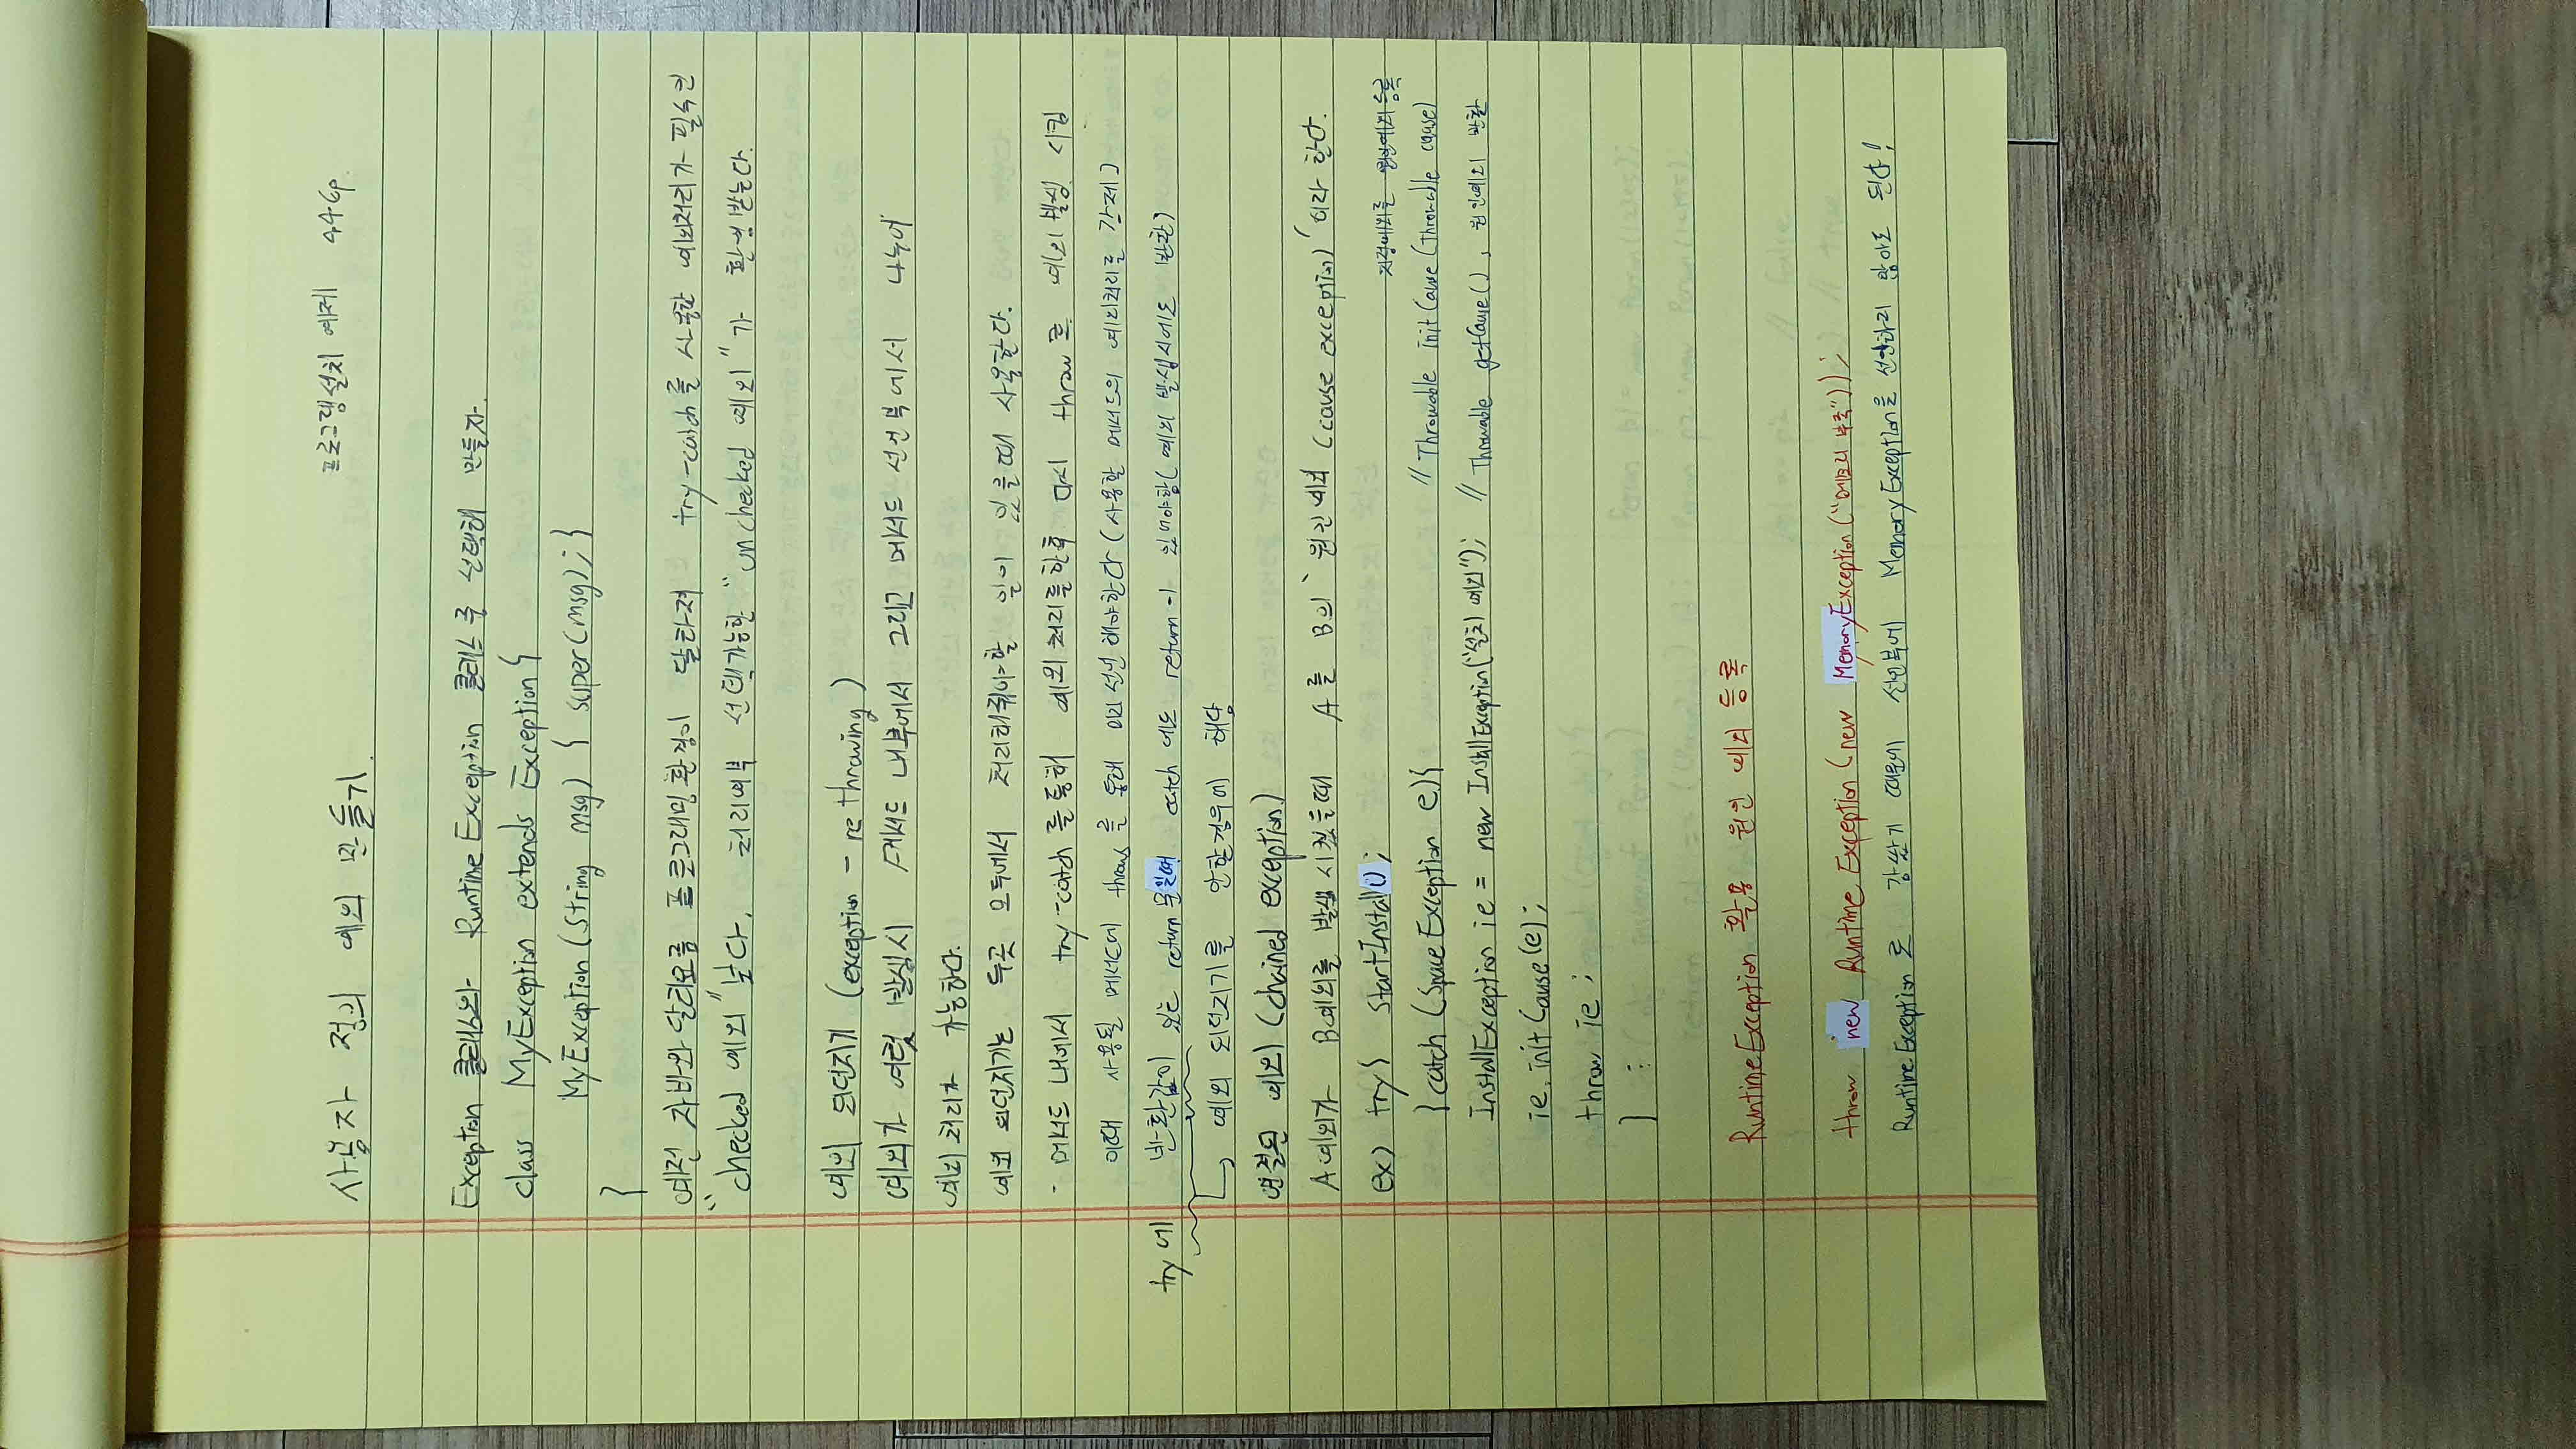 사용자 정의 예외 만들기.
프로그램설치 예제 446p.
Exception 클래스와 RuntimeException 클래스 중 선택해 만들자.
class MyException extends Exception {
MyException (String msg) { super(msg); }
}
예전 자바와 달리요름 프로그래밍환경이 달라져 try-catch를 사용한 예외처리가 필수인
"checked 예외" 보다. 처리여부 선택가능한 "unchecked 예외"가 환영받는다.
예외 되던지기 (exception - re throwing)
예외가 여럿 발생시 메서드 내부에서 그리고 메서드 선언부에서 나누어
예외 처리가 가능하다.
예외 되던지기는 두곳 모두에서 처리해줘야할 일이 있을때 사용한다.
- 메서드 내에서 try-catch를 통해 예외 처리를한후 다시 throw로 예외발생 시킴
이때 사용될 메서드에 throws를 통해 미리 선언 해야한다 (사용할 메서드의 예외처리를 강제)
try에 반환값이 있는 return문일때 catch에도 return이 있어야함 (예외 발생시에도 반환)
→ 예외 되던지기를 안할경우에 해당
연결된 예외 (chained exception)
A예외가 B예외를 발생시켰을때 A를 B의 '원인예외 (cause exception)' 이라 한다.
ex) try{ startInstall();
지정예외를 원인예외 등록
} catch (SpaceException e){ // Throwable initCause (Throwable cause)
InstallException ie = new InstallException("설치 예외"); // Throwable getCause(), 원인예외 반환
ie.initCause(e);
throw ie ;
} :
RuntimeException 활용 원인 예외 등록
throw new RuntimeException (new MemoryException ("메모리 부족"));
RuntimeException 로 감쌌기 때문에 선언부에 MemoryException을 선언하지 않아도 된다!